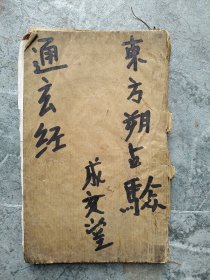 東方朔占驗
成文堂
通玄经